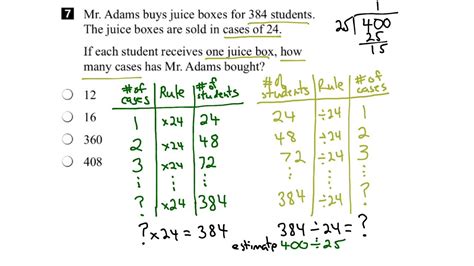 7 Mr. Adams buys juice boxes for 384 students.
The juice boxes are sold in cases of 24.
If each student receives one juice box, how
many cases has Mr. Adams bought?
12
16
360
408
# of cases | Rule | # of students
1 | ×24 | 24
2 | ×24 | 48
3 | ×24 | 72
⋮ | ⋮ | ⋮
? | ×24 | 384
? ×24 = 384
# of students | Rule | # of cases
24 | ÷24 | 1
48 | ÷24 | 2
72 | ÷24 | 3
⋮ | ⋮ | ⋮
384 | ÷24 | ?
384 ÷ 24 = ?
estimate 400 ÷ 25
1
25 400
25
15